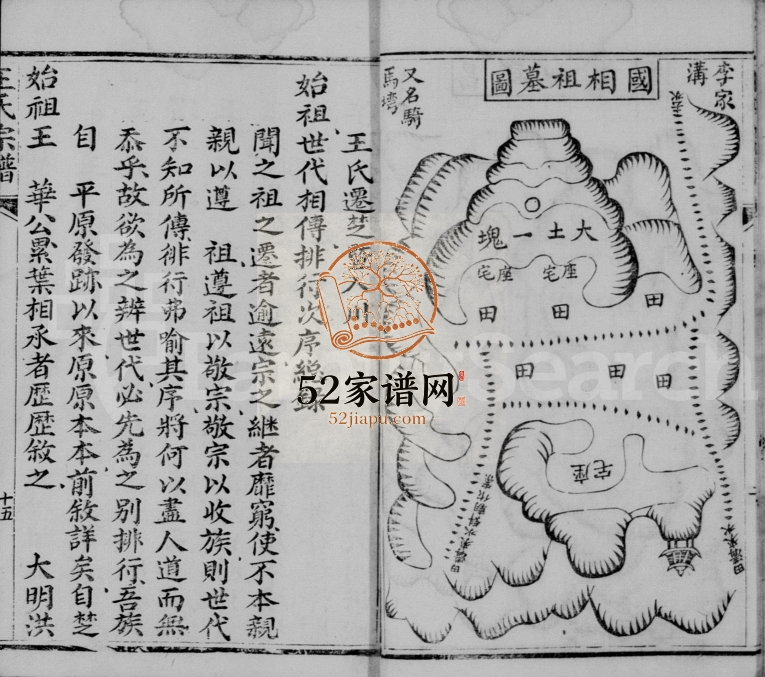 國相祖墓圖
李家溝
又名騎馬塆
大土一塊
座宅
座宅
田
田
田
田
田
田
座宅
王氏遷楚
始祖世代相傳排行次序總錄
聞之祖之遷者逾遠宗之繼者靡窮使不本親
親以遵 祖遵祖以敬宗敬宗以收族則世代
不知所傳徘行弗喻其序將何以盡人道而無
忝乎故欲為之辨世代必先為之別排行吾族
自 平原發跡以來原原本本前敘詳矣自楚
始祖王 華公累葉相承者歷歷敘之 大明洪
王氏宗譜
十五
52家谱网
52jiapu.com